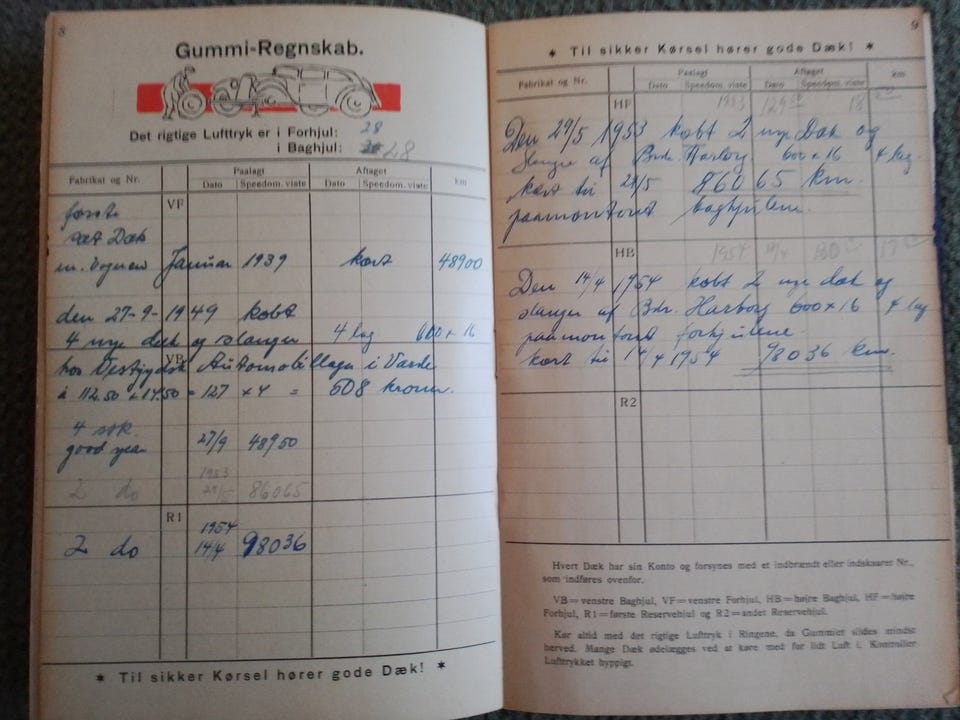 8
Gummi-Regnskab.
Det rigtige Lufttryk er i Forhjul: 28
i Baghjul: 28
Fabrikat og Nr. Paalagt Aftaget km
Dato Speedom. viste Dato Speedom. viste
VF
første
sæt Dæk
m. Vognen Januar 1939 kørt 48900
den 27-9-1949 købt
4 nye dæk og slanger 4 lag 600 x 16
VB
hos Vestjydsk Automobillager i Varde
á 112.50 + 14.50 = 127 x 4 = 508 kroner.
4 stk.
good year 27/9 48950
1953
2 do 29/5 86065
R1
1954
2 do 14/4 98036
* Til sikker Kørsel hører gode Dæk! *
9
* Til sikker Kørsel hører gode Dæk! *
Fabrikat og Nr. Paalagt Aftaget km
Dato Speedom. viste Dato Speedom. viste
HF 1953
Den 29/5 1953 købt 2 nye Dæk og
slanger af Brdr. Harbog 600 x 16 4 lag.
kørt til 29/5 86065 km.
paamonteret baghjulene.
HB 1954 14/4
Den 14/4 1954 købt 2 nye dæk og
slanger af Bdr. Harbog 600 x 16 4 lag
paamonteret forhjulene.
kørt til 14/4 1954 98036 km.
R2
Hvert Dæk har sin Konto og forsynes med et indbrændt eller indskaaret Nr.,
som indføres ovenfor.
VB = venstre Baghjul, VF = venstre Forhjul, HB = højre Baghjul, HF = højre
Forhjul, R1 = første Reservehjul og R2 = andet Reservehjul.
Kør altid med det rigtige Lufttryk i Ringene, da Gummiet slides mindst
herved. Mange Dæk ødelægges ved at køre med for lidt Luft i. Kontroller
Lufttrykket hyppigt.